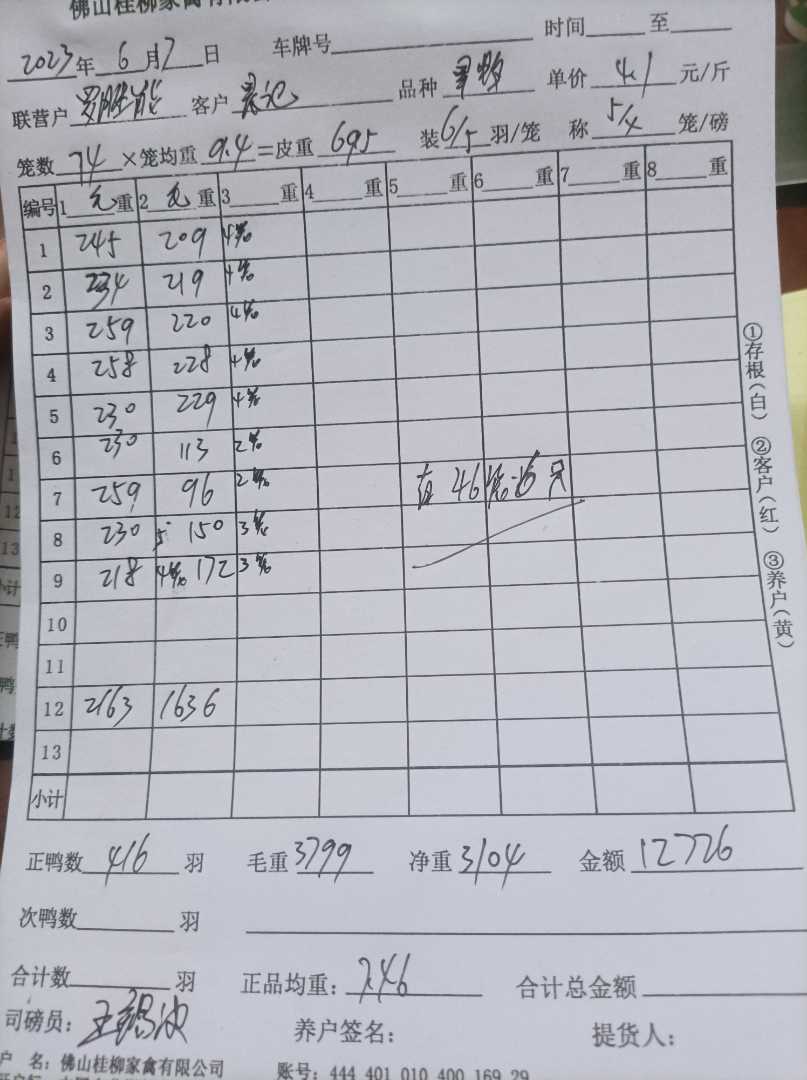 佛山桂柳家禽有限公
2023年 6月7日 车牌号 时间 至
联营户 罗胜能 客户 品种 单价 4.1 元/斤
笼数 74 ×笼均重 9.4 =皮重 695 装 6/5 羽/笼 称 5/4 笼/磅
编号 1 毛 重 2 毛 重 3 重 4 重 5 重 6 重 7 重 8 重
1 245 209 4笼
2 234 219 4笼
3 259 220 4笼
4 258 228 4笼
5 230 229 4笼
6 230 113 2笼
7 259 96 2笼 46笼
8 230 5- 150 3笼
9 218 4笼 172 3笼
10
11
12 2163 1636
13
小计
①存根(白) ②客户(红) ③养户(黄)
正鸭数 416 羽 毛重 3799 净重 3104 金额 12726
次鸭数 羽
合计数 羽 正品均重: 7.46 合计总金额
司磅员: 养户签名: 提货人:
户 名: 佛山桂柳家禽有限公司 账号: 444 401 010 400 169 29